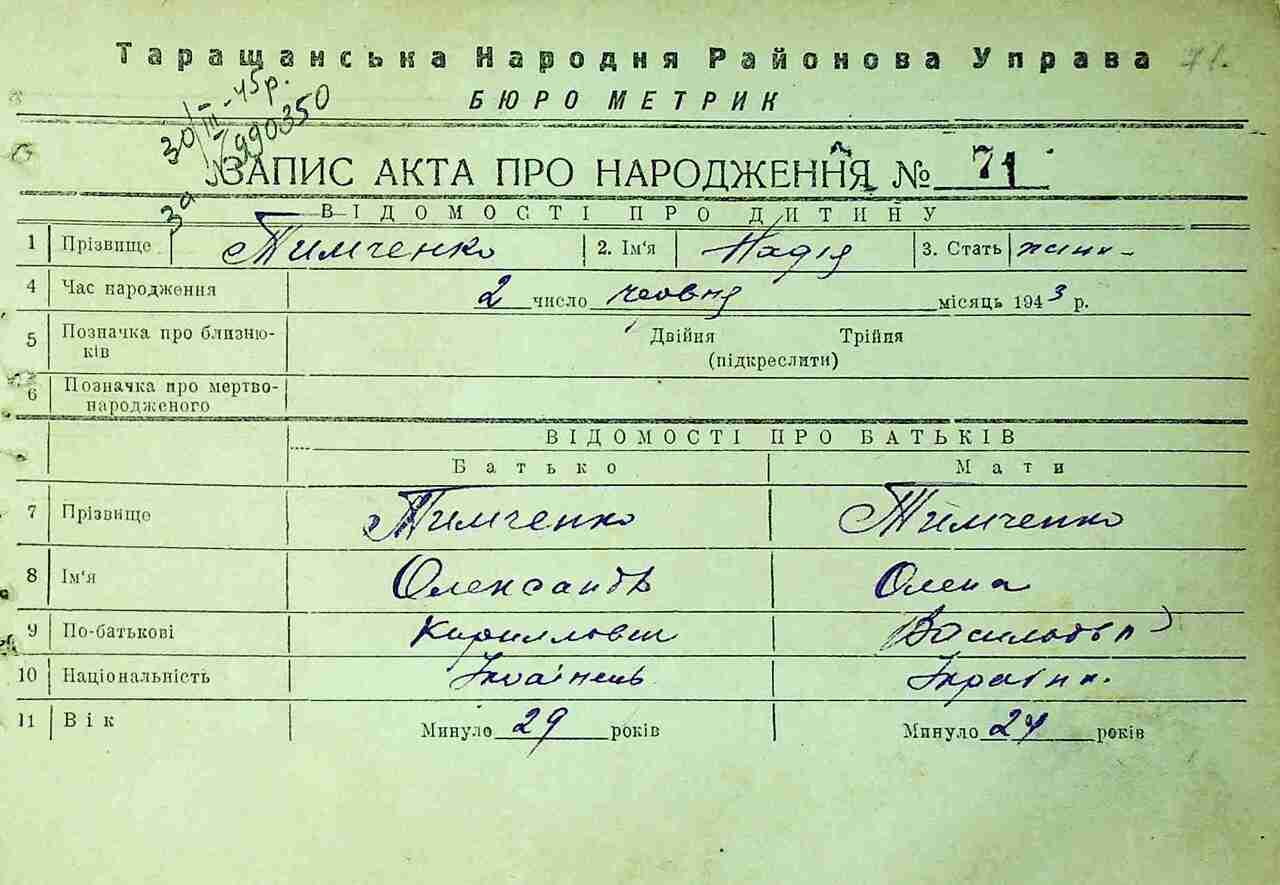 Таращанська Народня Районова Управа 71.
БЮРО МЕТРИК
30/III-45р.
За № 990350
ЗАПИС АКТА ПРО НАРОДЖЕННЯ № 71
ВІДОМОСТІ ПРО ДИТИНУ
1 Прізвище Тимченко 2. Ім'я Надія 3. Стать жіни-
4 Час народження 2 число червня місяць 1943 р.
5 Позначка про близню- Двійня Трійня
ків (підкреслити)
6 Позначка про мертво-
народженого
ВІДОМОСТІ ПРО БАТЬКІВ
Батько Мати
7 Прізвище Тимченко Тимченко
8 Ім'я Олександр Олена
9 По-батькові Кириллович Васильовна
10 Національність Українець Українк.
11 Вік Минуло 29 років Минуло 24 років